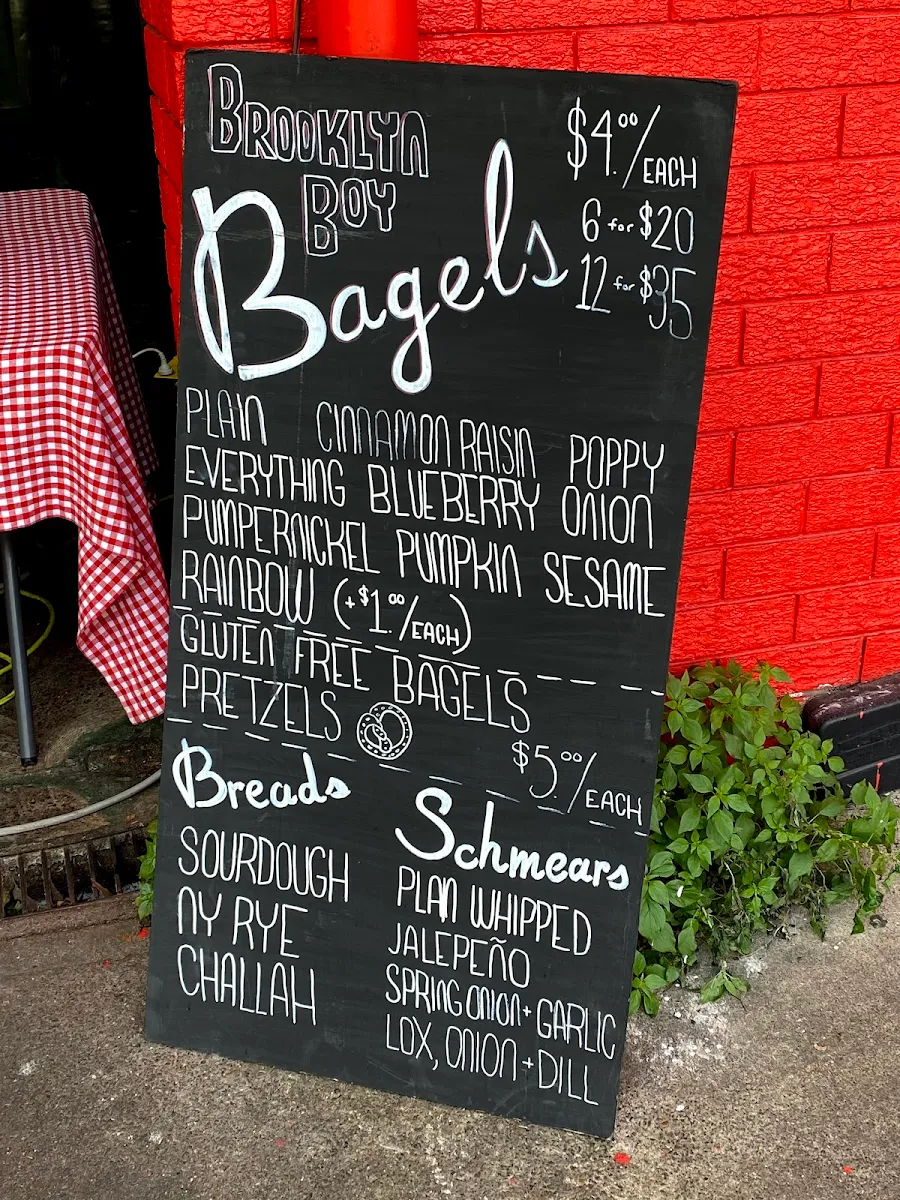 BROOKLYN
BOY
Bagels
$4.00/EACH
6 for $20
12 for $35
PLAIN CINNAMON RAISIN POPPY
EVERYTHING BLUEBERRY ONION
PUMPERNICKEL PUMPKIN SESAME
RAINBOW (+$1.00/EACH)
GLUTEN FREE BAGELS
PRETZELS
$5.00/EACH
Breads
SOURDOUGH
NY RYE
CHALLAH
Schmears
PLAN WHIPPED
JALEPEÑO
SPRING ONION + GARLIC
LOX, ONION + DILL